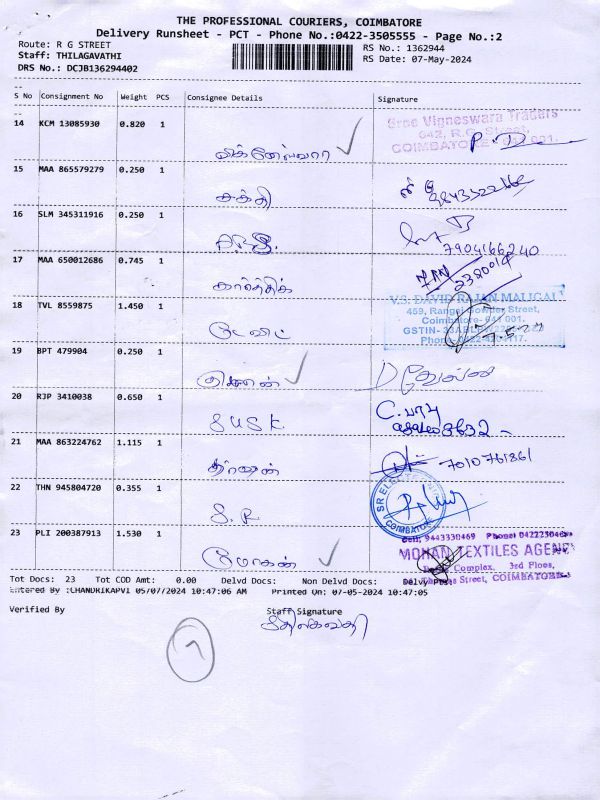 THE PROFESSIONAL COURIERS, COIMBATORE
Delivery Runsheet - PCT - Phone No.:0422-3505555 - Page No.:2
Route: R G STREET
RS No.: 1362944
Staff: THILAGAVATHI
RS Date: 07-May-2024
DRS No.: DCJB136294402
S No Consignment No Weight PCS Consignee Details Signature
14 KCM 13085930 0.820 1
Sree Vigneswara Traders
642, R.G. Street,
COIMBATORE - 641 001.
விக்னேஸ்வரா
15 MAA 865579279 0.250 1
சக்தி
16 SLM 345311916 0.250 1
7904166240
17 MAA 650012686 0.745 1
2380014
கார்த்திக்
18 TVL 8559875 1.450 1
V.S. DAVID RAJAN MALIGAI
459, Rangai Gowder Street,
Coimbatore- 641 001.
டேவிட்
19 BPT 479904 0.250 1
20 RJP 3410038 0.650 1
C. பாபு
SUSK
21 MAA 863224762 1.115 1
7010761861
22 THN 945804720 0.355 1
COIMBATORE
S.R
23 PLI 200387913 1.530 1
Cell: 9443330469 Phone: 0422230469
MOHAN TEXTILES AGENCY
Complex, 3rd Floor,
Street, COIMBATORE
மோகன்
Tot Docs: 23 Tot COD Amt: 0.00 Delvd Docs: Non Delvd Docs: Delvy Pct:
Entered By :CHANDRIKAPVI 05/07/2024 10:47:06 AM Printed On: 07-05-2024 10:47:05
Verified By Staff Signature
திலகவதி